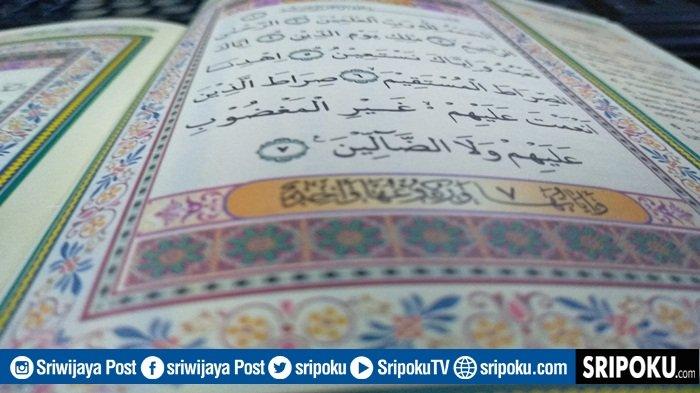 رَبِّ الْعٰلَمِيْنَ ۝٢ الرَّحْمٰنِ
الرَّحِيْمِ ۝٣ مٰلِكِ يَوْمِ الدِّيْنِ ۝٤ اِيَّاكَ
نَعْبُدُ وَاِيَّاكَ نَسْتَعِيْنُ ۝٥ اِهْدِنَا
الصِّرَاطَ الْمُسْتَقِيْمَ ۝٦ صِرَاطَ الَّذِيْنَ
اَنْعَمْتَ عَلَيْهِمْ غَيْرِ الْمَغْضُوْبِ
عَلَيْهِمْ وَلَا الضَّآلِّيْنَ ۝٧
Sriwijaya Post sriwijaya Post sripoku SripokuTV sripoku.com SRIPOKU.com